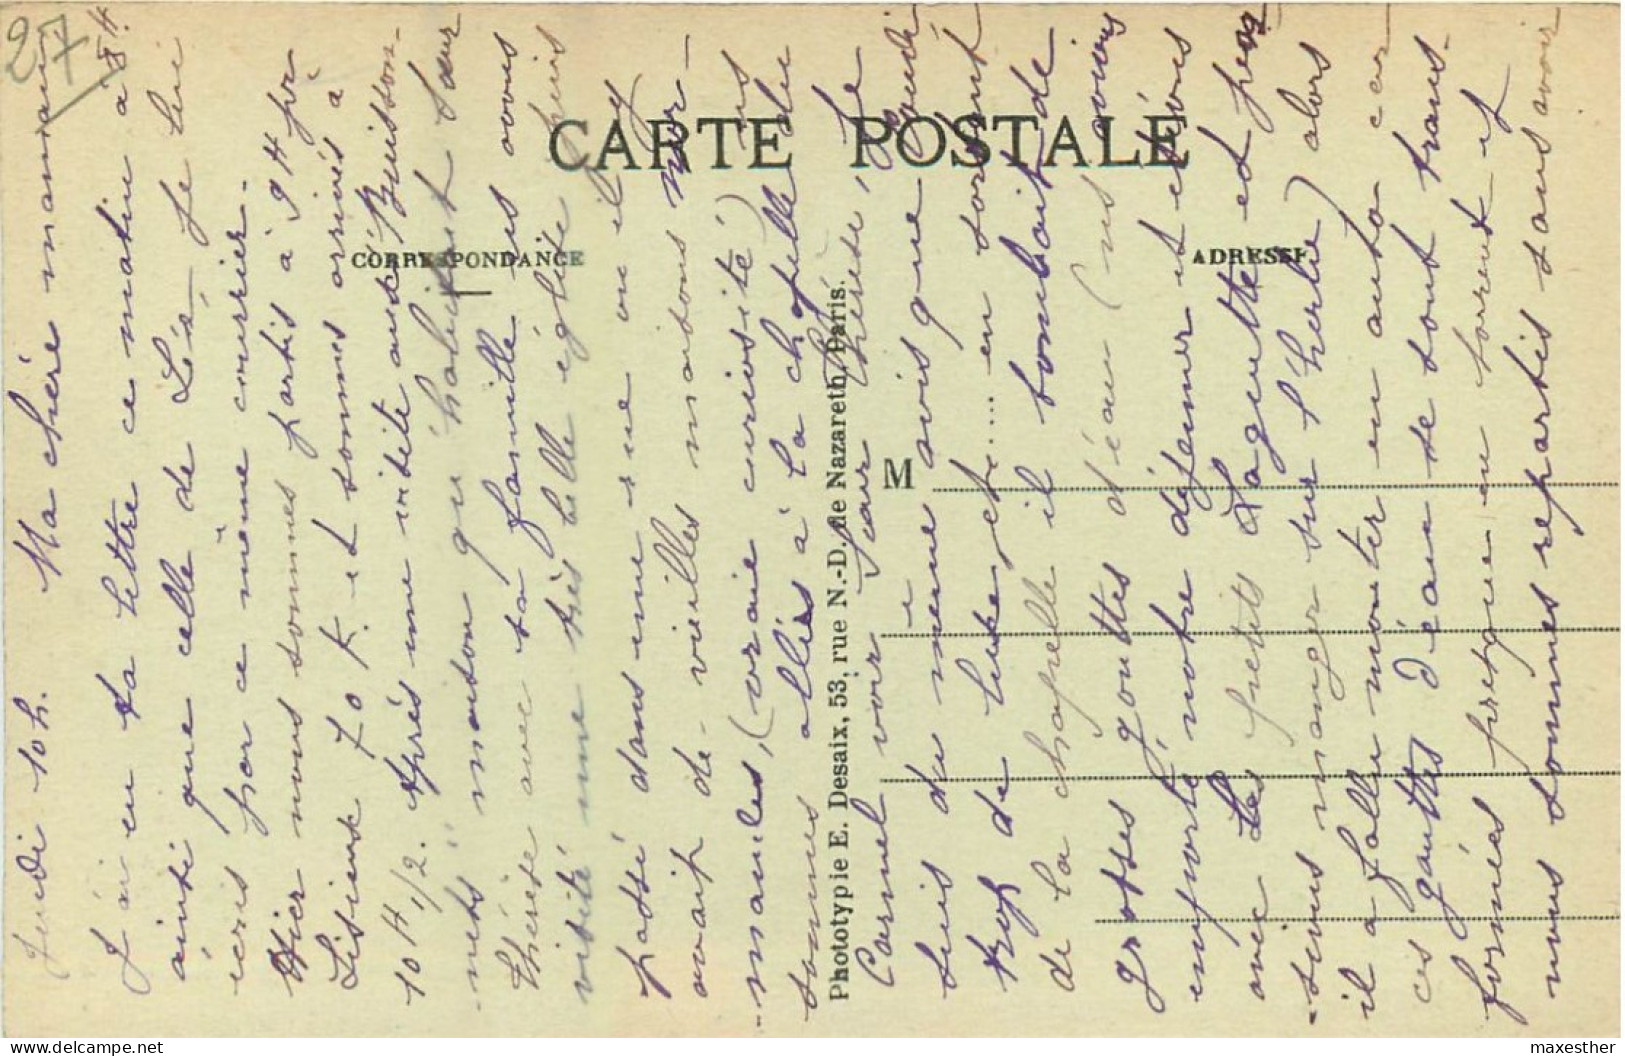 27
CARTE POSTALE
CORRESPONDANCE
ADRESSE.
M
Phototypie E. Desaix, 53, rue N.-D. de Nazareth, Paris.
Jeudi 10h. Ma chère maman
J'ai eu ta lettre ce matin à 8H.
ainsi que celle de Je lui
écris par ce même courrier.
Hier nous sommes partis à 9H pr
Lisieux 70 K. et sommes arrivés à
10H 1/2. Après une visite aux "Buisson-
-nets" maison qu'habitait Sœur
Thérèse avec sa famille ns avons
visité une très belle église puis
passé dans une rue où il y
avait de vieilles maisons nor-
-mandes, (vraie curiosité) ns
sommes allés à la chapelle du
Carmel voir Sœur Thérèse, Je
suis du même avis que
trop de luxe, et..... en sortant
de la chapelle il tombait de
grosses gouttes d'eau (ns avions
emporté notre déjeuner et étions
avec les petits Laguette et pen
-sions manger sur l'herbe) alors
il a fallu monter en auto car
ces gouttes d'eau se sont trans-
formées presque en torrent et
nous sommes repartis sans avoir
maxesther